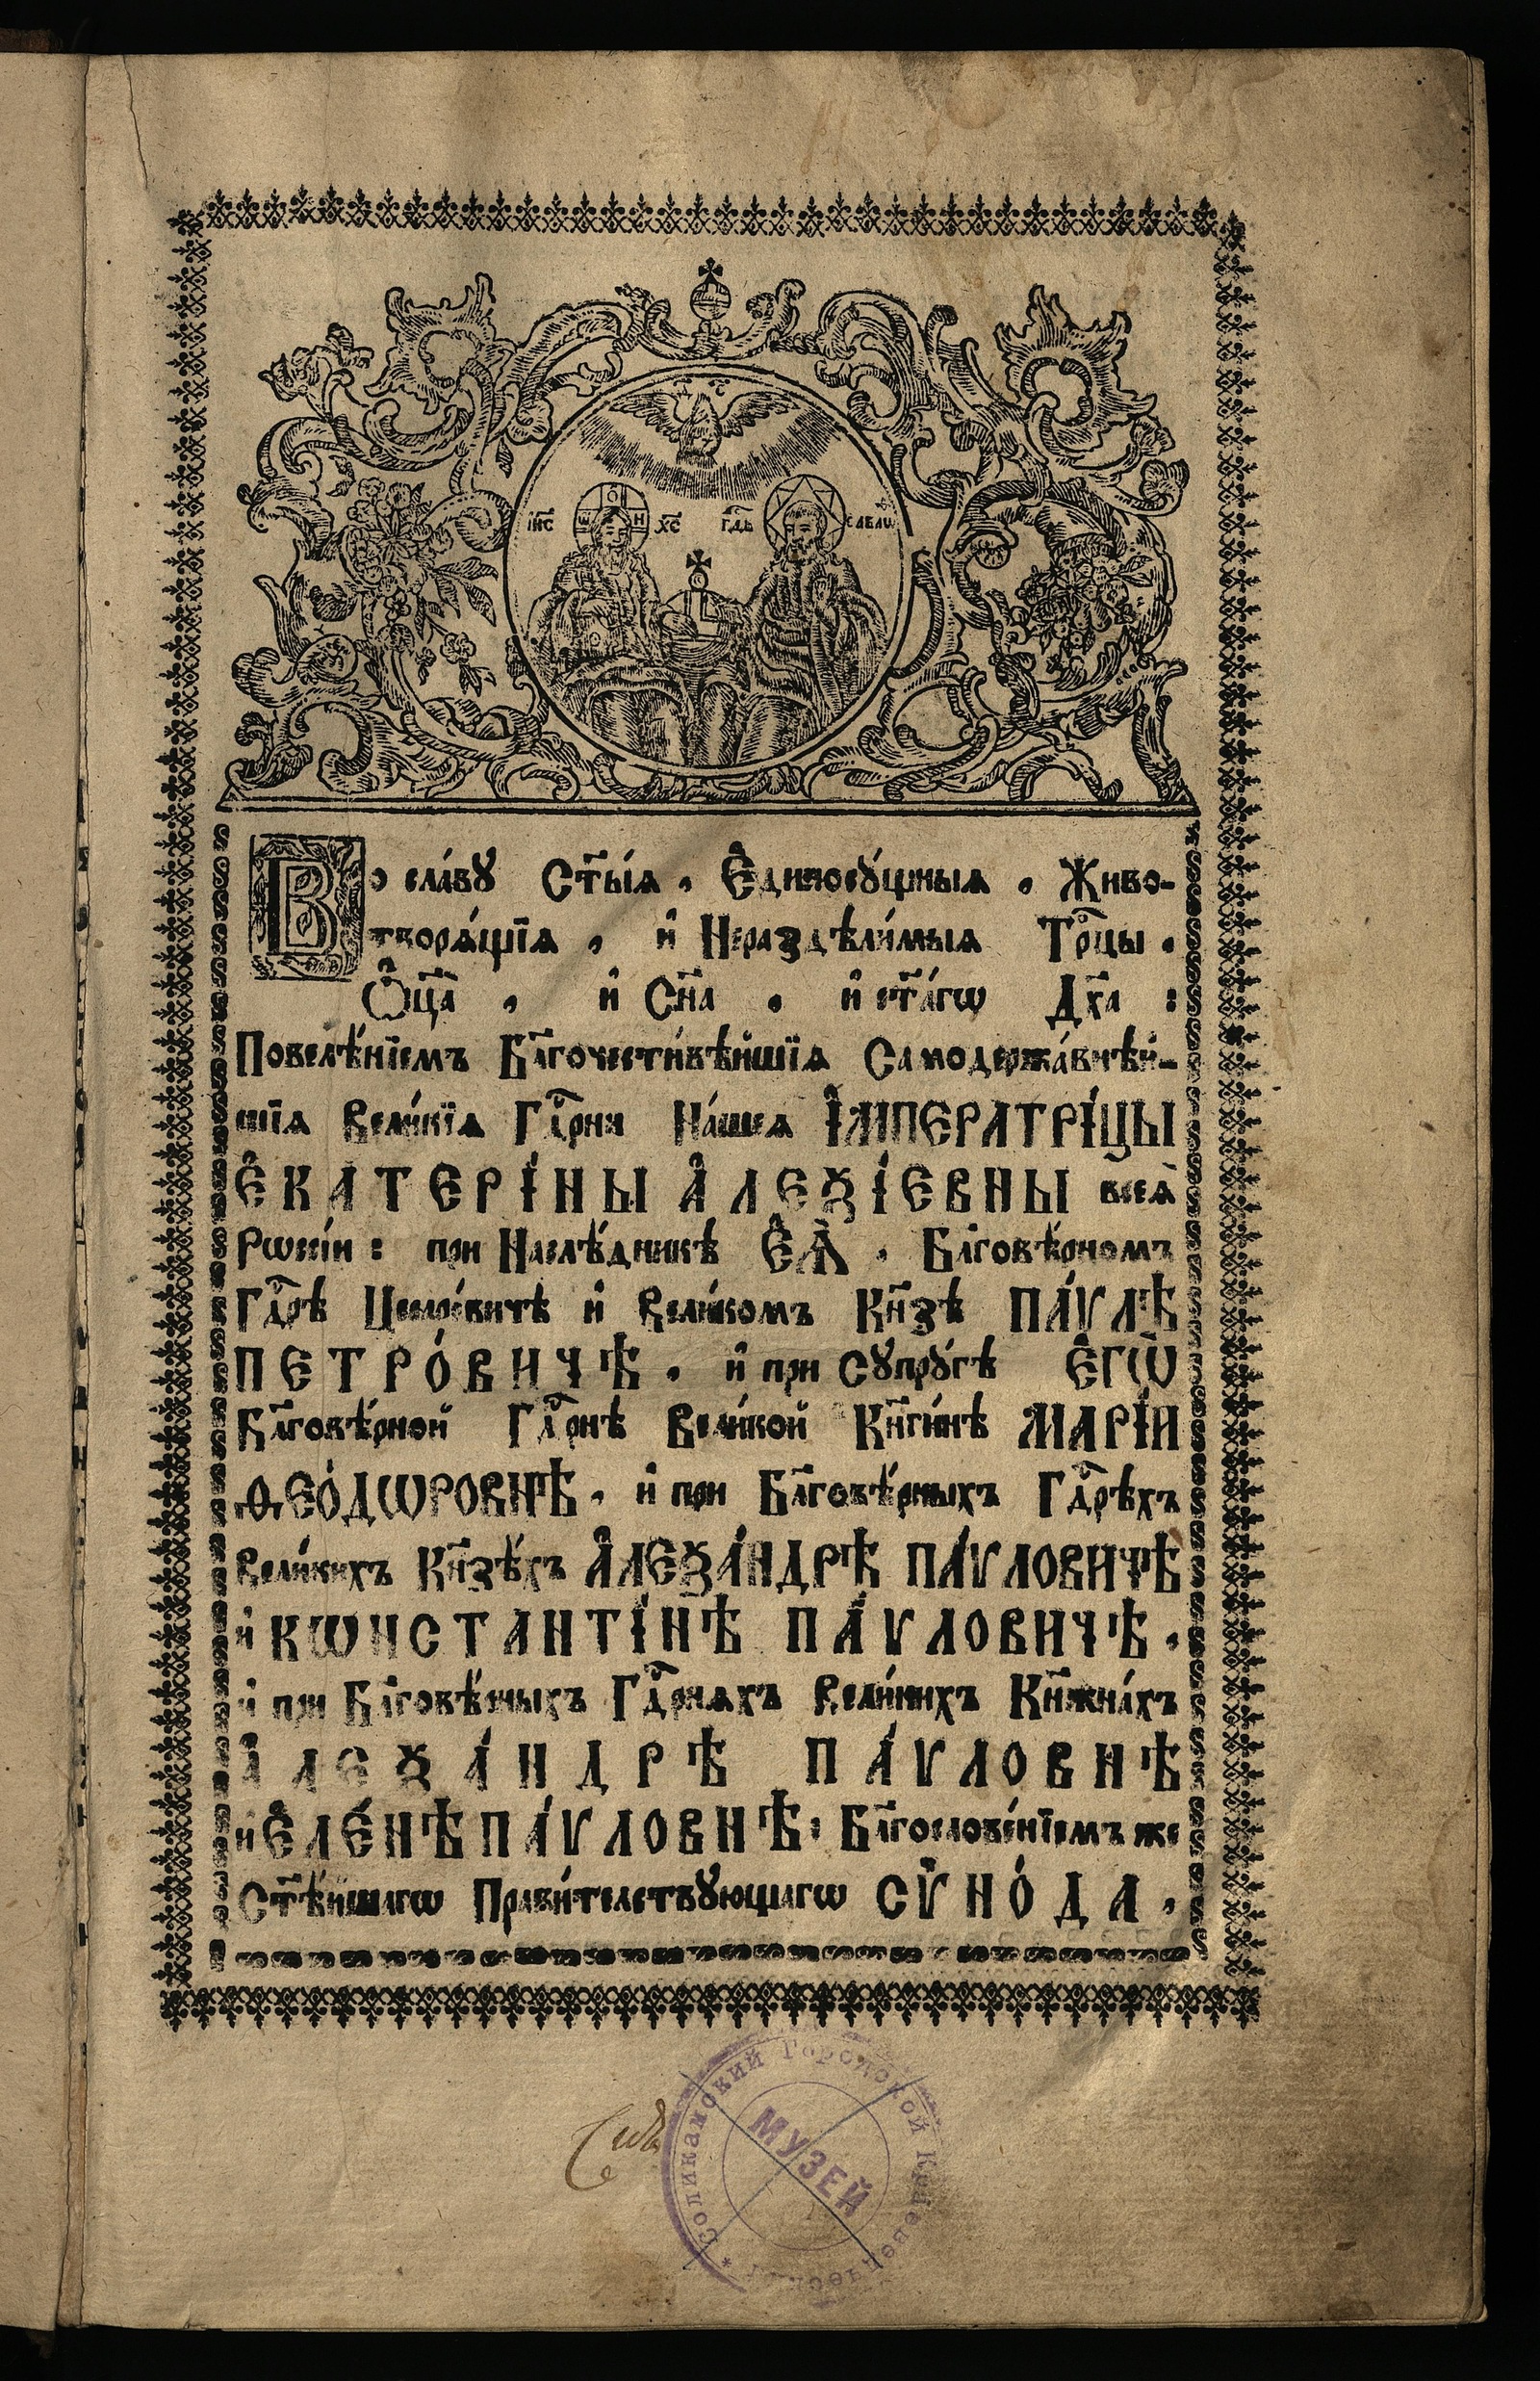 Д С
ІИ҃С ХС҃ ГДЬ САВАѠ
Во сла́вꙋ Ст҃ы́ѧ, Є҆диносꙋ́щныѧ, Живо-
творѧ́щїѧ, и҆ Нераздѣли́мыѧ Трⷪ҇цы,
Ѻ҆ц҃а̀, и҆ Сн҃а, и҆ ст҃а́гѡ Дх҃а:
Повелѣ́нїемъ Бл҃гочести́вѣйшїѧ Самодержа́внѣй-
шїѧ Вели́кїѧ Гдⷭ҇рни На́шеѧ І҆МПЕРАТРІ́ЦЫ
Є҆КАТЕРІ́НЫ А҆ЛЕѮІ́ЕВНЫ всеѧ̀
Рѡссі́и: при Наслѣ́дникѣ Є҆Ѧ̀, Бл҃говѣ́рномъ
Гдⷭ҇рѣ Цесаре́вичѣ и҆ Вели́комъ Кн҃зѣ ПА́ѴЛѢ
ПЕТРО́ВИЧѢ, и҆ при Сꙋпрꙋ́гѣ Є҆ГѠ̀
Бл҃говѣ́рной Гдⷭ҇рнѣ Вели́кой Кн҃ги́нѣ МАРІ́И
ѲЕО́ДѠРОВНѢ, и҆ при Бл҃говѣ́рныхъ Гдⷭ҇рѣхъ
Вели́кихъ Кн҃зѣ́хъ А҆ЛЕѮА́НДРѢ ПА́ѴЛОВИЧѢ
и҆ КѠНСТАНТІ́НѢ ПА́ѴЛОВИЧѢ,
и҆ при Бл҃говѣ́рныхъ Гдⷭ҇рнѧхъ Вели́кихъ Кн҃жна́хъ
А҆ЛЕѮА́НДРѢ ПА́ѴЛОВНѢ
и҆ Є҆ЛЕ́НѢ ПА́ѴЛОВНѢ: Бл҃гослове́нїемъ же
Ст҃ѣ́йшагѡ Прави́телствꙋющагѡ СѴ҆НО́ДА,
* Соликамский Городской Краеведческий
МУЗЕЙ